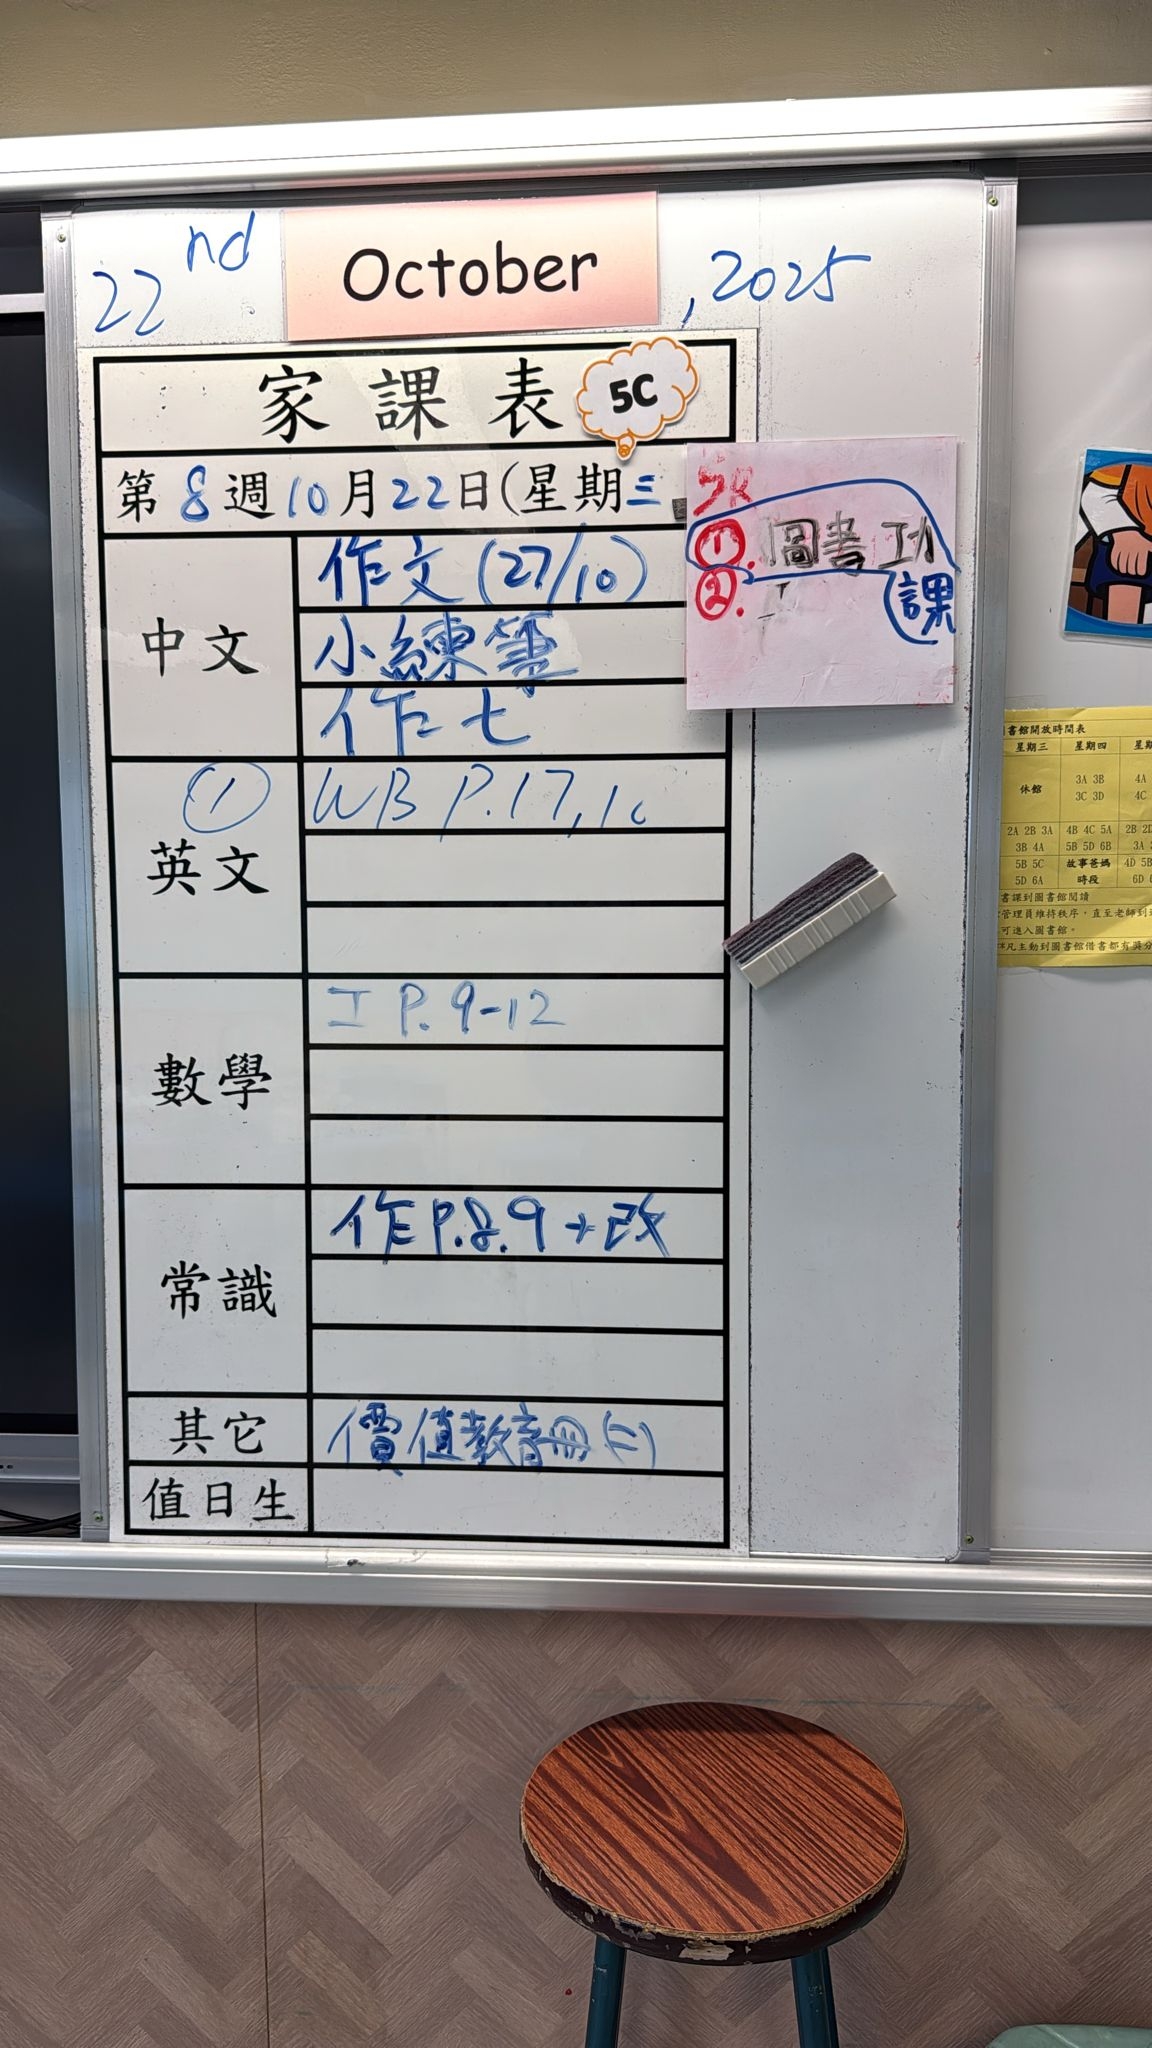 22nd October, 2025
家課表 5C
第8週10月22日(星期三
中文
作文(27/10)
小練筆
作七
① 英文
WB P.17,1
數學
工 P.9-12
常識
作P.8.9+改
其它
價值教育冊(二)
值日生
①. 圖書功課
②.
書館開放時間表
星期三 星期四
休館
3A 3B 4A
3C 3D 4C
2A 2B 3A 4B 4C 5A
3B 4A 5B 5D 6B 3A
5B 5C 故事爸媽
5D 6A 時段
書課到圖書館閱讀
管理員維持秩序,直至老師到
可進入圖書館。
凡主動到圖書館借書都有獎分